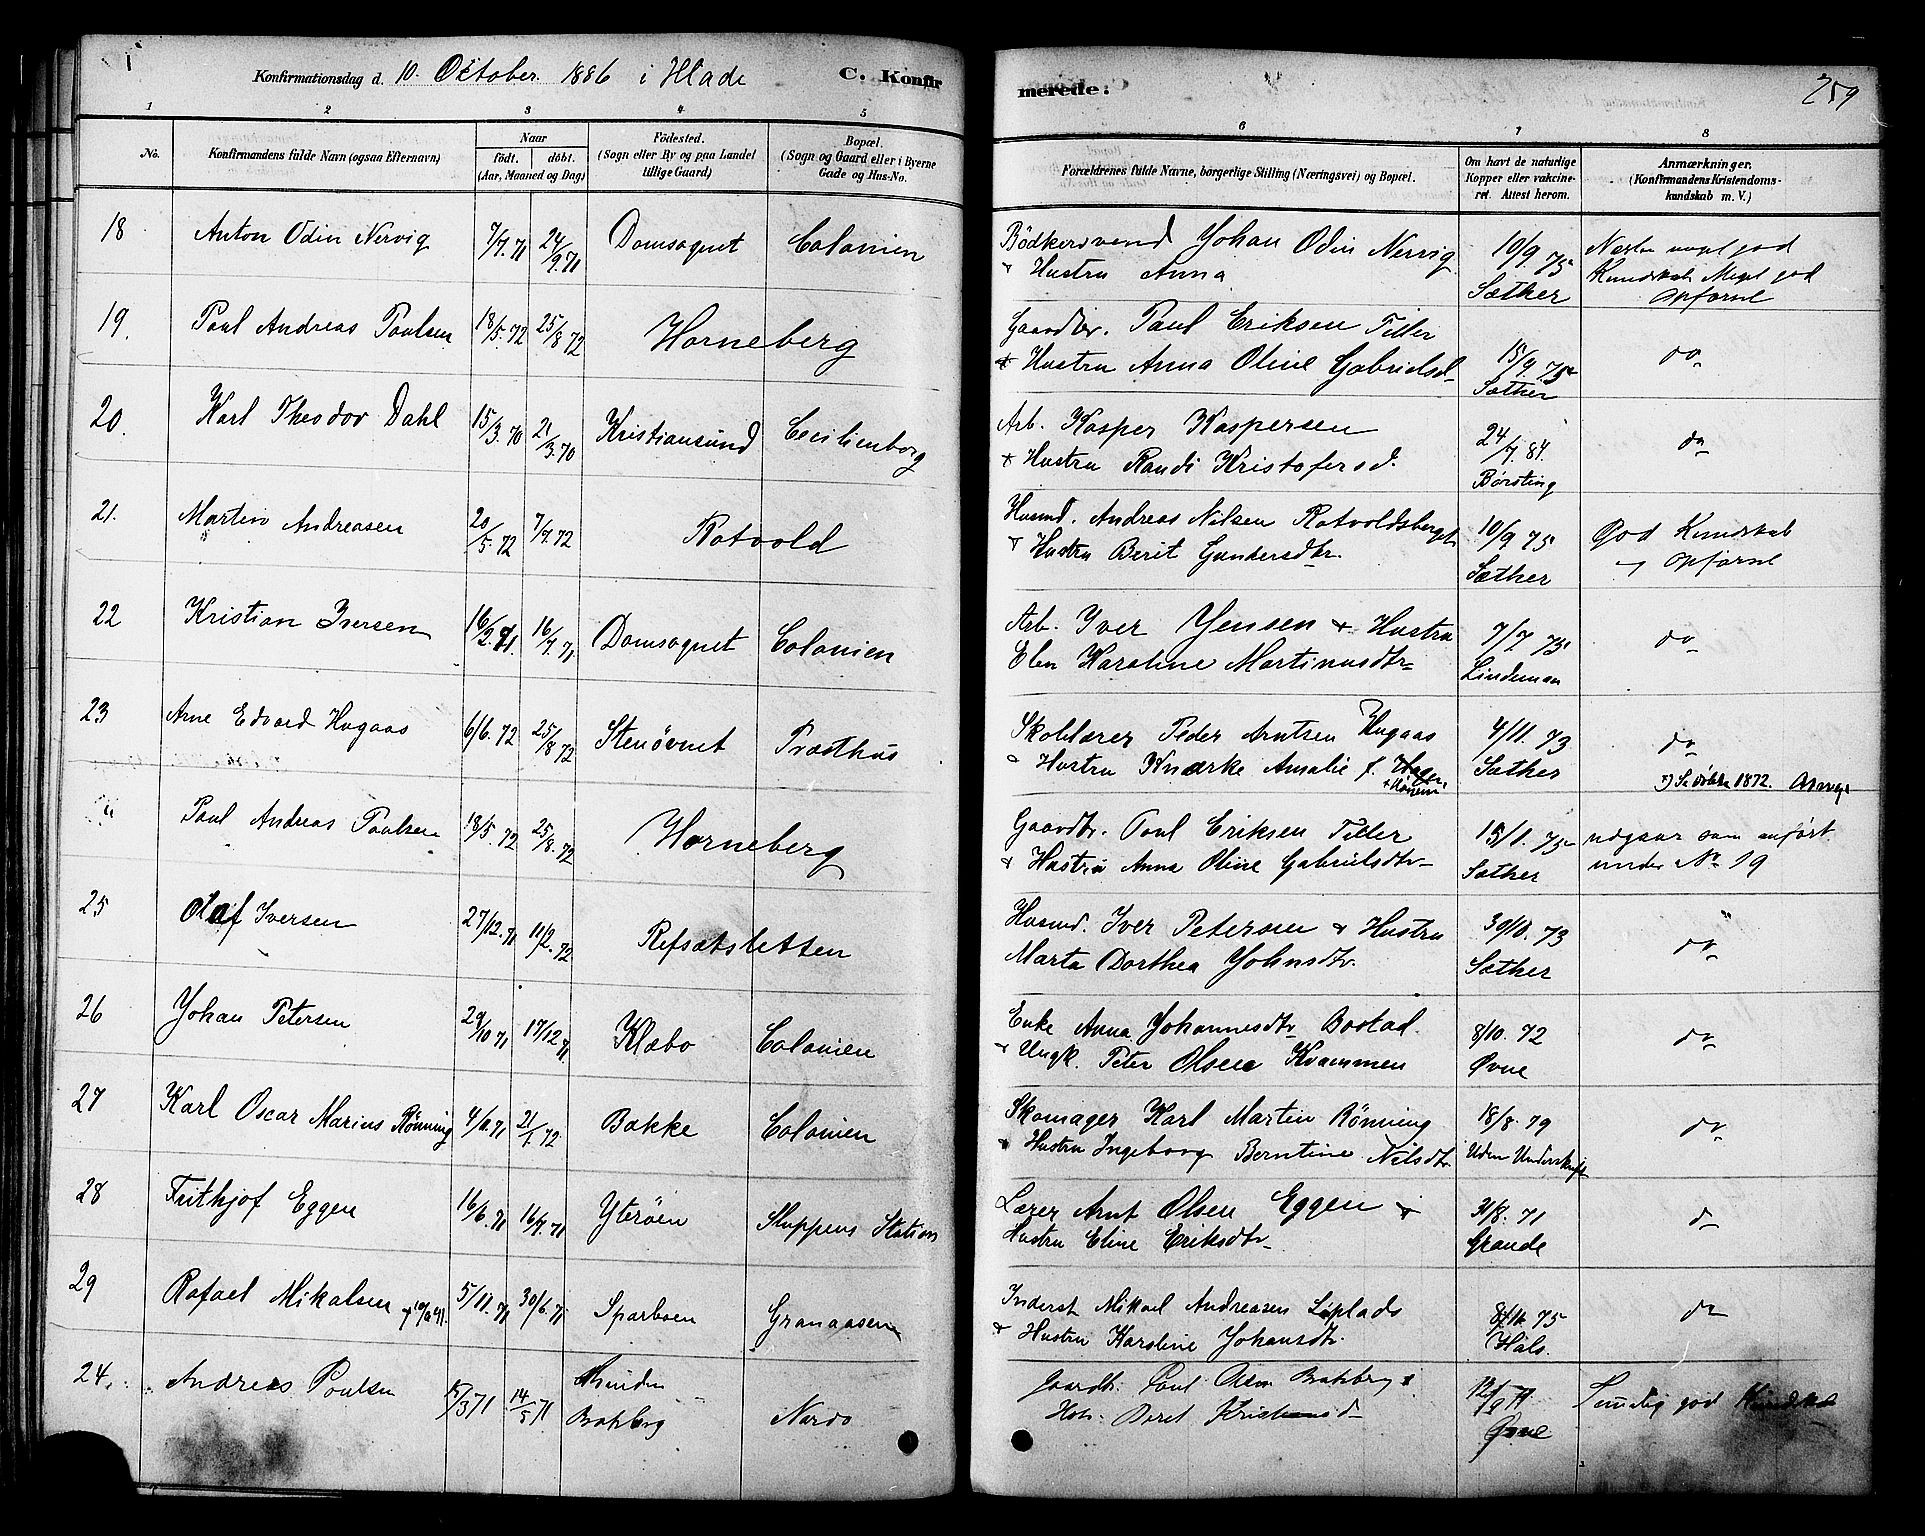 Konfirmationsdag d. 10. October 1886 i Hlade
C. Konfirmerede:
259
1 2 3 4 5 6 7 8
No.
Konfirmandens fulde Navn (ogsaa Efternavn)
Naar
födt. döbt.
(Aar, Maaned og Dag)
Födested.
(Sogn eller By og paa Landet
tillige Gaard)
Bopæl.
(Sogn og Gaard eller i Byerne
Gade og Hus-No.
Forældrenes fulde Navne, borgerlige Stilling (Næringsvei) og Bopæl.
Om havt de naturlige
Kopper eller vakcine-
ret. Attest herom.
Anmærkninger.
(Konfirmandens Kristendoms-
kundskab m. V.)
18 Anton Odin Nervig 7/7.71 24/9.71 Domsognet Colonien Bödkersvend Johan Odin Nervig 10/9 75 Næsten meget god
+ Hustru Anna Sæther Kundskab Meget god
Opførsel
19. Paul Andreas Paulsen 18/5.72 25/8 72 Horneberg Gaardbr. Paul Eriksen Tiller
+ Hustru Anna Oline Gabrielsd 15/9.75 Sæther do
20. Karl Theodor Dahl 15/3.70 21/3.70 Kristiansund Cecilienborg Arb. Kasper Kaspersen
+ Hustru Randi Kristofersd. 24/7.84. Börsting do
21. Martin Andreasen 20/5.72 7/7.72 Rotvold Husmd. Andreas Nilsen Rotvoldsberget 10/9 75 God Kundskab
+ Hustru Berit Gundersdtr. Sæther Opførsel
22 Kristian Iversen 16/2.71. 16/7.71 Domsognet Colonien Arb. Iver Jensen + Hustru 7/7 73
Elen Karoline Martinusdtr Lindeman do
23 Arne Edvard Hugaas 6/6.72 25/8 72 Stenövnet Præsthus Skolelærer Peder Arntsen Hugaas 4/11.73
Hustru Knærke Amalie f. Sæther do
Paul Andreas Paulsen 18/5.72 25/8.72 Horneberg Gaardbr. Paul Eriksen Tiller 75 udgaar som anført
+ Hustru Anna Oline Gabrielsdtr Sæther under No 19
25 Olaf Iversen 27/12.71 11/2.72 Refsætsletten Husmd. Iver Petersen + Hustru 73
Marta Dorthea Johnsdtr. Sæther do
26 Johan Petersen 29/10 71 17/12.71 Klæbo Colonien Enke Anna Johannesdtr Bostad. 8/10.72
+ Ungk. Peter Olsen Kvammen Øvne do
27 Karl Oscar Marius Rönning 71 21/1.72 Bakke Colonien Skomager Karl Martin Rönning 18/8.79
Hustru Ingeborg Berntine Nilsdtr Uden Underskrift do
28 Frithjof Eggen 16/6.71 16/7.71 Yterøen Sluppens Station Lærer Arnt Olsen Eggen + 31/8.71
Hustru Eline Eriksdtr Grande d
29 Rafael Mikalsen 5/11.71 30/6.71 Sparboen Granaasen Inderst Mikael Andreasen Löplads 75
+ Hustru Karoline Johansdtr. Hals. do
24. Andreas Poulsen 15/3 71 14/5 71 Strinden
Bakberg Nardo Gaardb. Poul Bakberg +
Hstr. Beret Øvne god